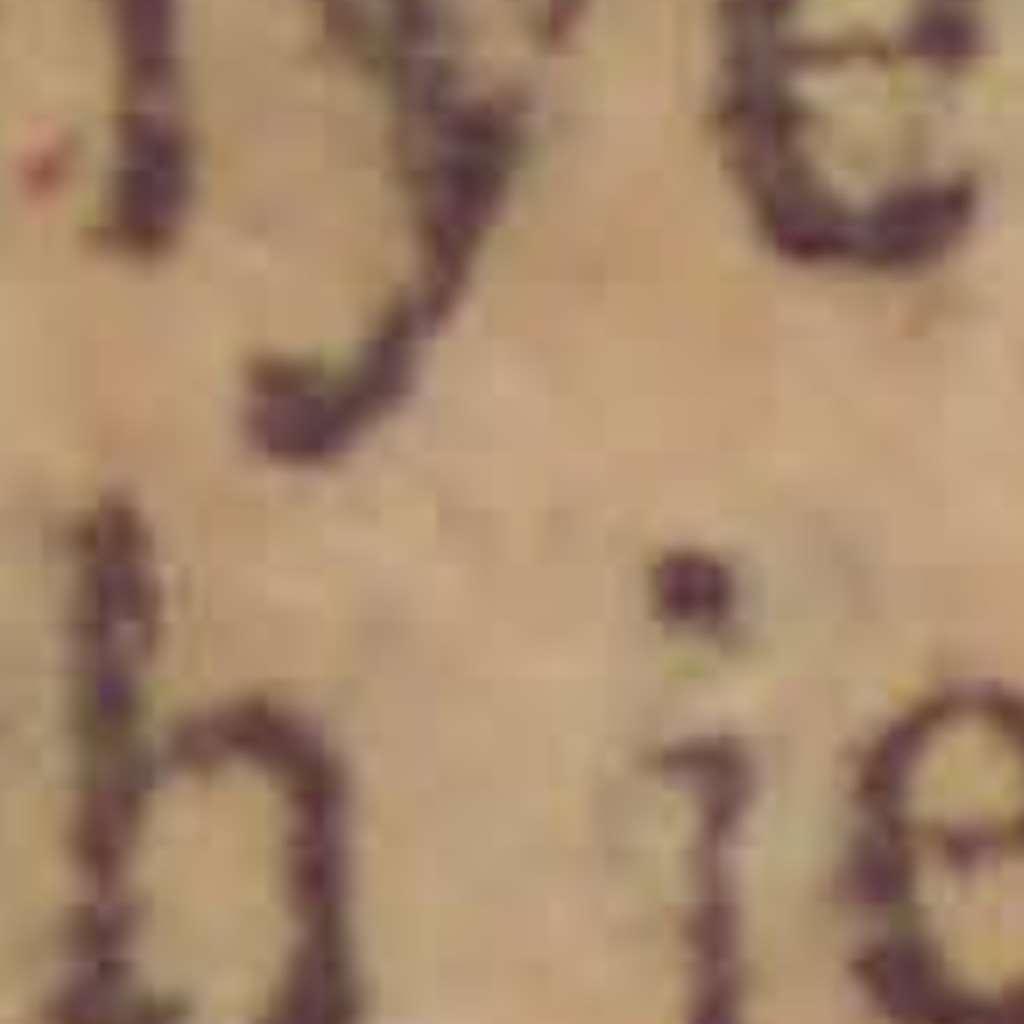 ye
h ie